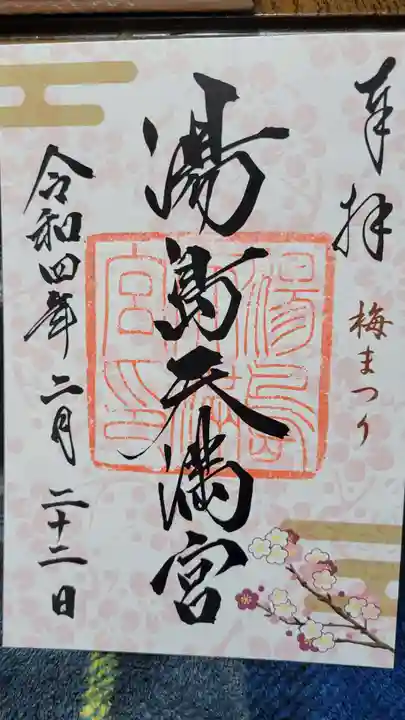 奉拝
梅まつり
湯島天満宮
湯島天満宮印
令和四年二月二十二日